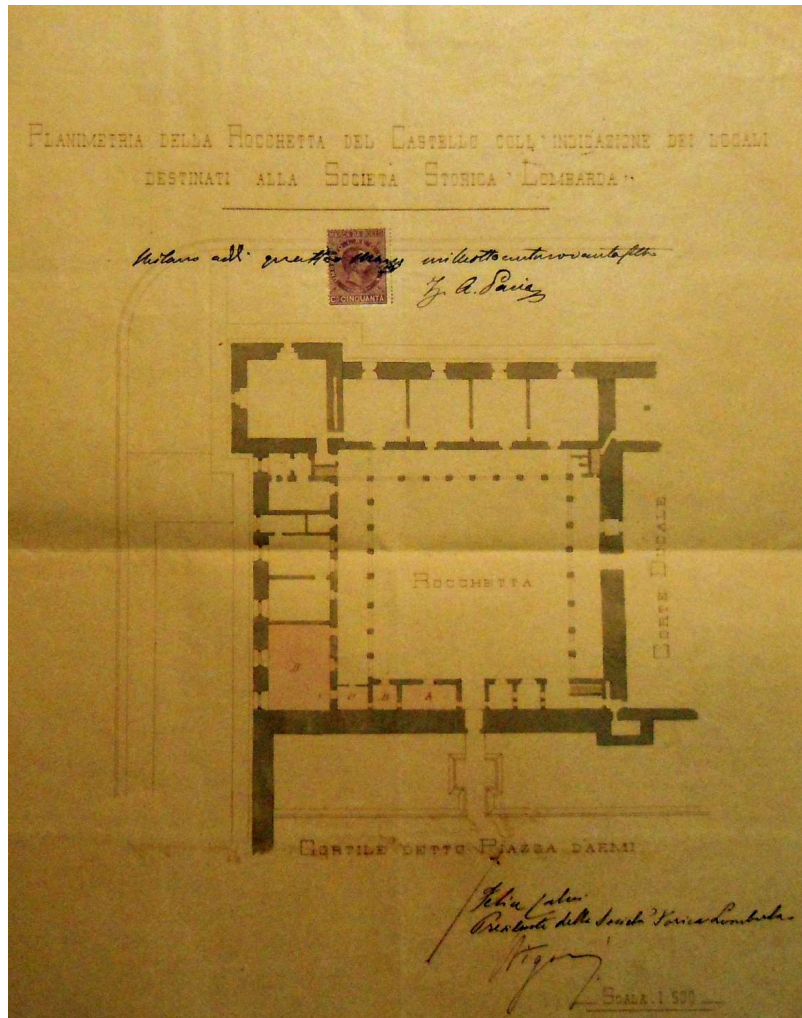 PLANIMETRIA DELLA ROCCHETTA DEL CASTELLO COLL'INDICAZIONE DEI LOCALI
DESTINATI ALLA SOCIETÀ STORICA "LOMBARDA"
MARCA DA BOLLO
Milano addì quattro Marzo millottocentonovantasette
CINQUANTA
ROCCHETTA
CORTE DUCALE
B
B
A
CORTILE DETTO PIAZZA D'ARMI
Felice Calvi
Presidente della Società Storica Lombarda
SCALA 1:500